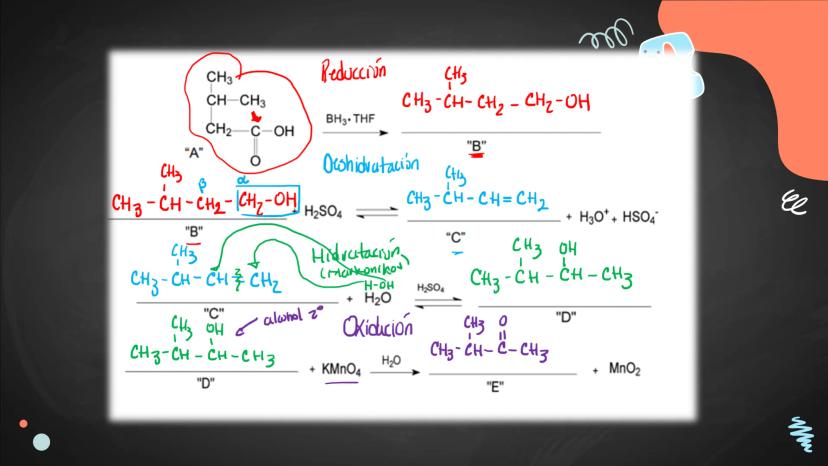 CH₃
CH—CH₃
CH₂—C—OH
O
"A"
Reducción
BH₃•THF
CH₃
CH₃-CH-CH₂-CH₂-OH
"B"
Deshidratación
CH₃
β
α
CH₃-CH-CH₂-CH₂-OH
+ H₂SO₄
"B"
CH₃
CH₃-CH-CH=CH₂
+ H₃O⁺ + HSO₄⁻
"C"
CH₃
CH₃-CH-CH=CH₂
"C"
Hidratación
(Markonikov)
H-OH
+ H₂O
H₂SO₄
CH₃ OH
CH₃-CH-CH-CH₃
"D"
CH₃ OH
alcohol 2°
CH₃-CH-CH-CH₃
"D"
Oxidación
+ KMnO₄
H₂O
CH₃ O
CH₃-CH-C-CH₃
"E"
+ MnO₂